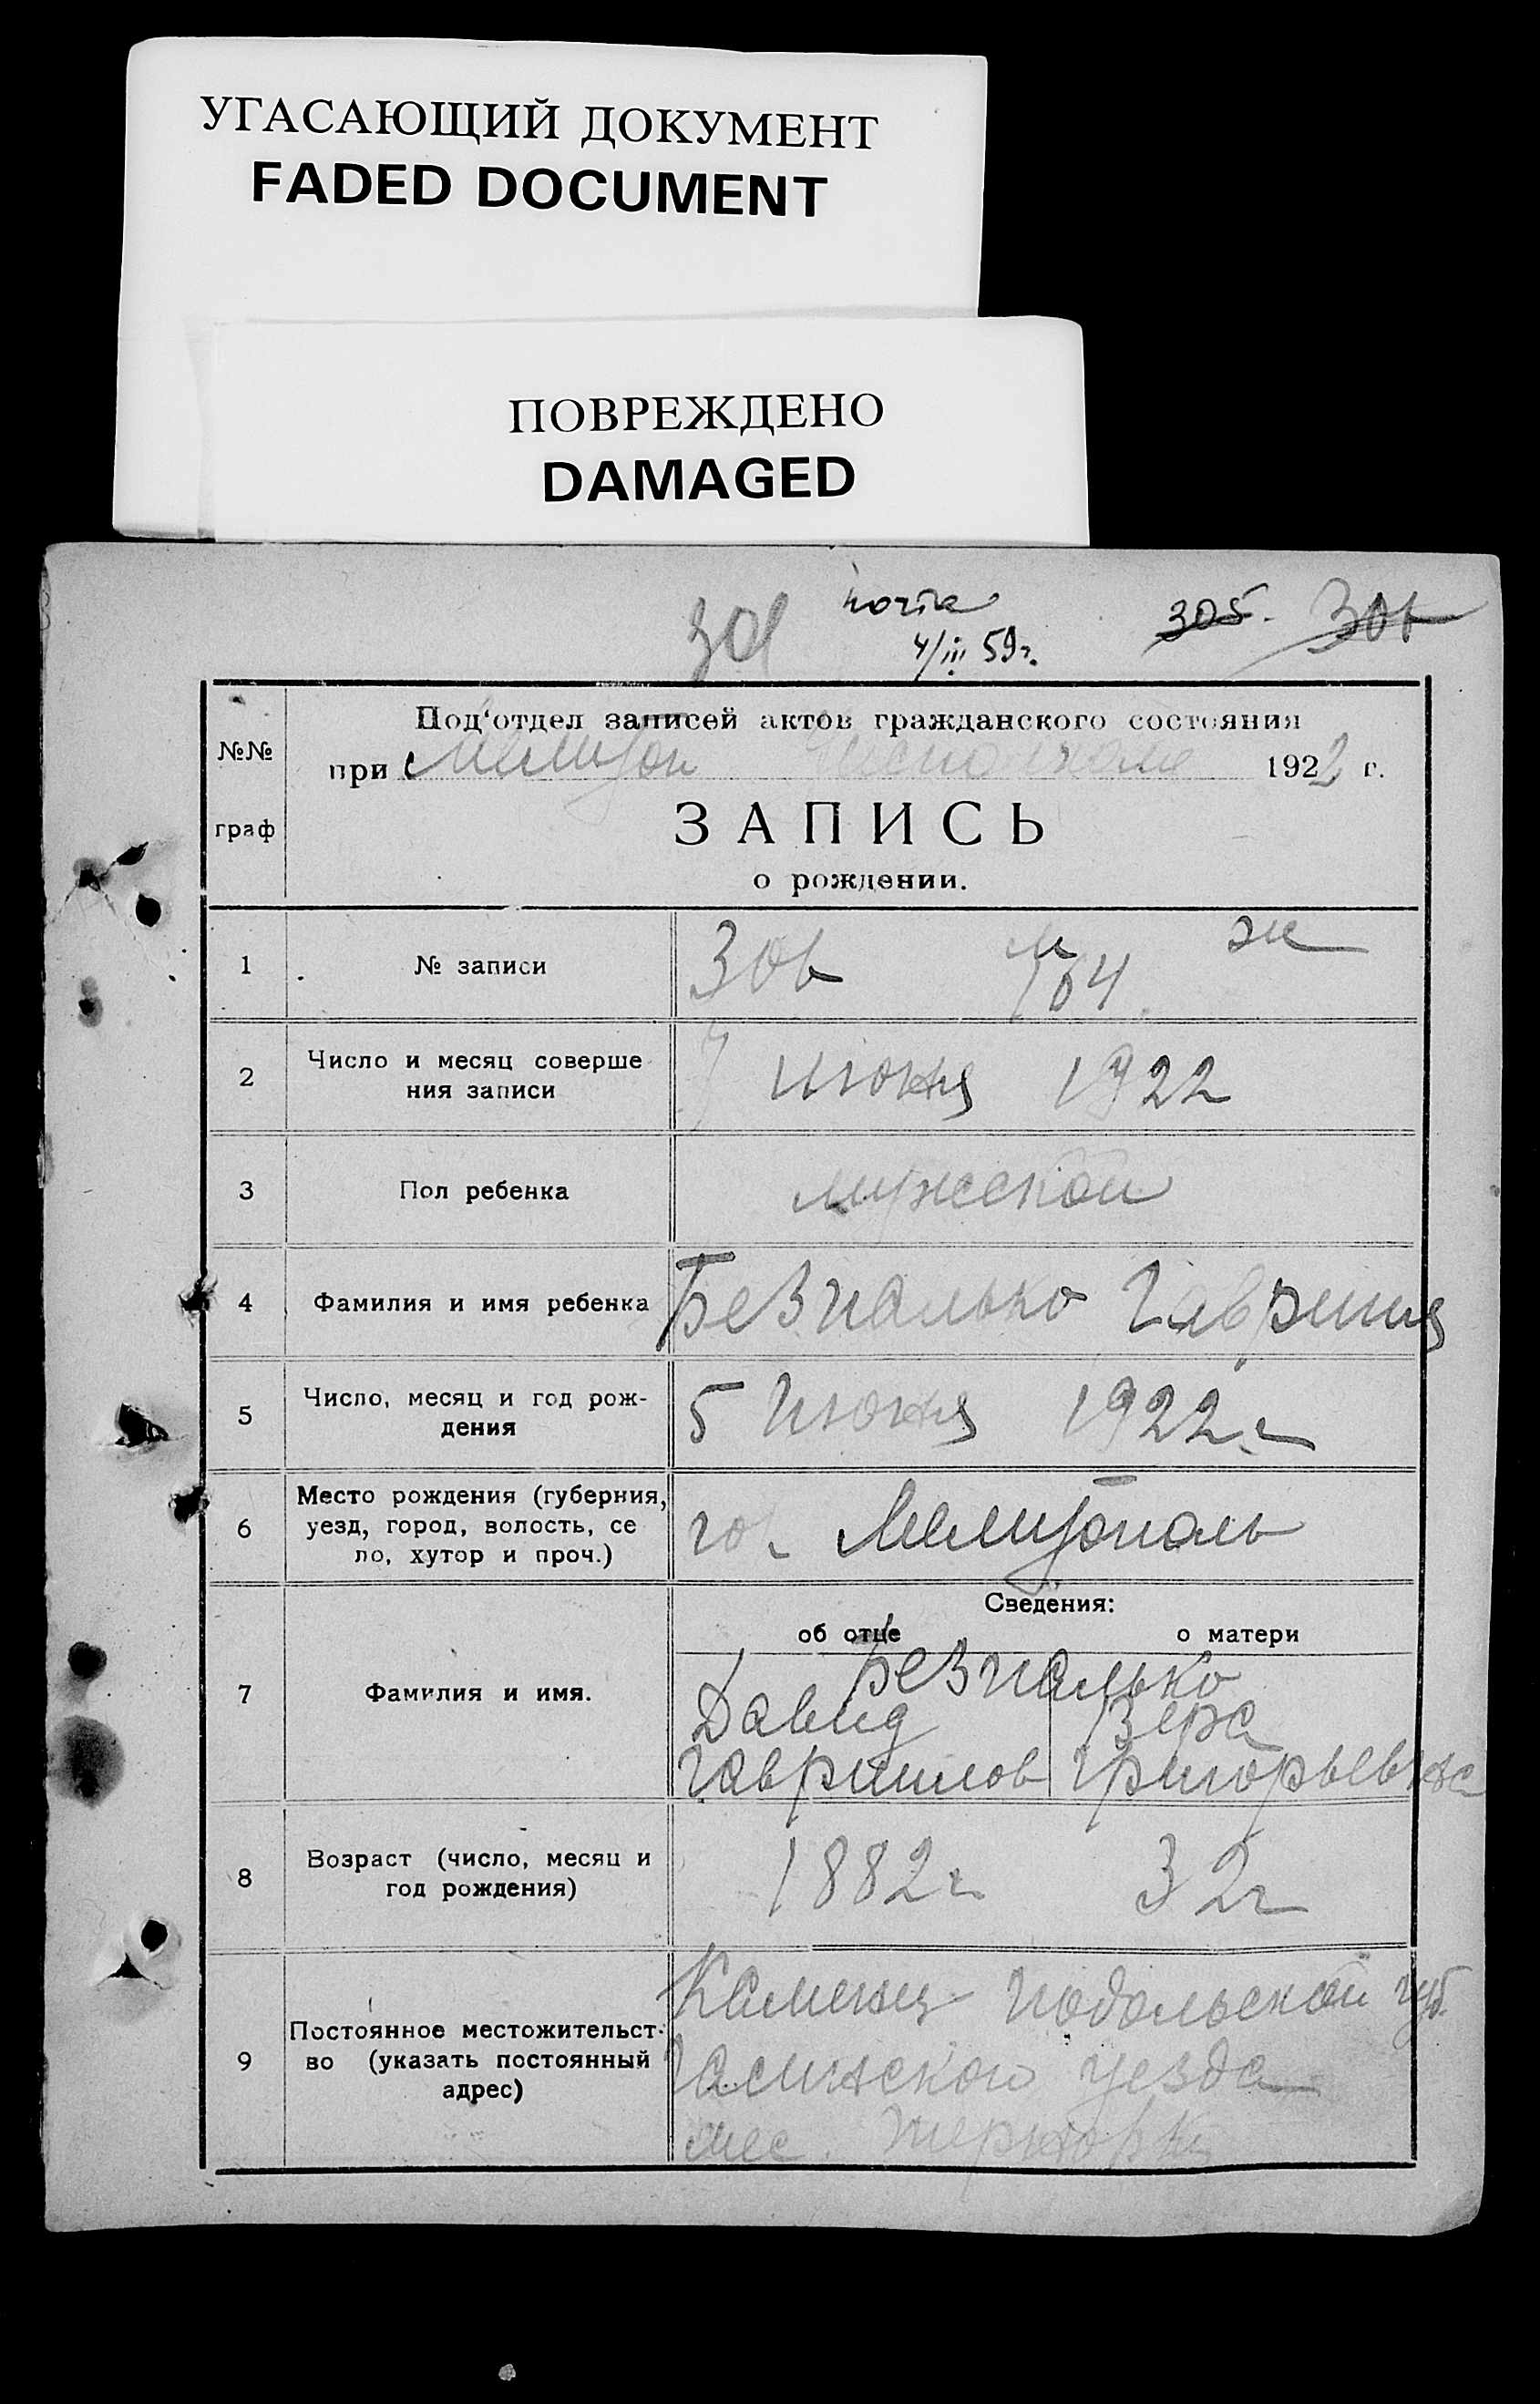 УГАСАЮЩИЙ ДОКУМЕНТ
FADED DOCUMENT
ПОВРЕЖДЕНО
DAMAGED
почта
305. 306
4/III 59г.
№№
граф
Под‘отдел записей актов гражданского состояния
при Мелитоп 1922 г.
ЗАПИСЬ
о рождении.
1 № записи 306 м 164 ж
2 Число и месяц соверше
ния записи
7 июня 1922
3 Пол ребенка мужской
4 Фамилия и имя ребенка Безпалько Гавриил
5 Число, месяц и год рож-
дения
5 Июня 1922 г
6 Место рождения (губерния,
уезд, город, волость, се
ло, хутор и проч.)
го. Мелитополь
Сведения:
об отце о матери
7 Фамилия и имя.
Безпалько
Давид Вера
Гавриилов Григорьевна
8 Возраст (число, месяц и
год рождения)
1882 г 32 г
9 Постоянное местожительст-
во (указать постоянный
адрес)
Каменец Подольской губ.
уезда
мес.